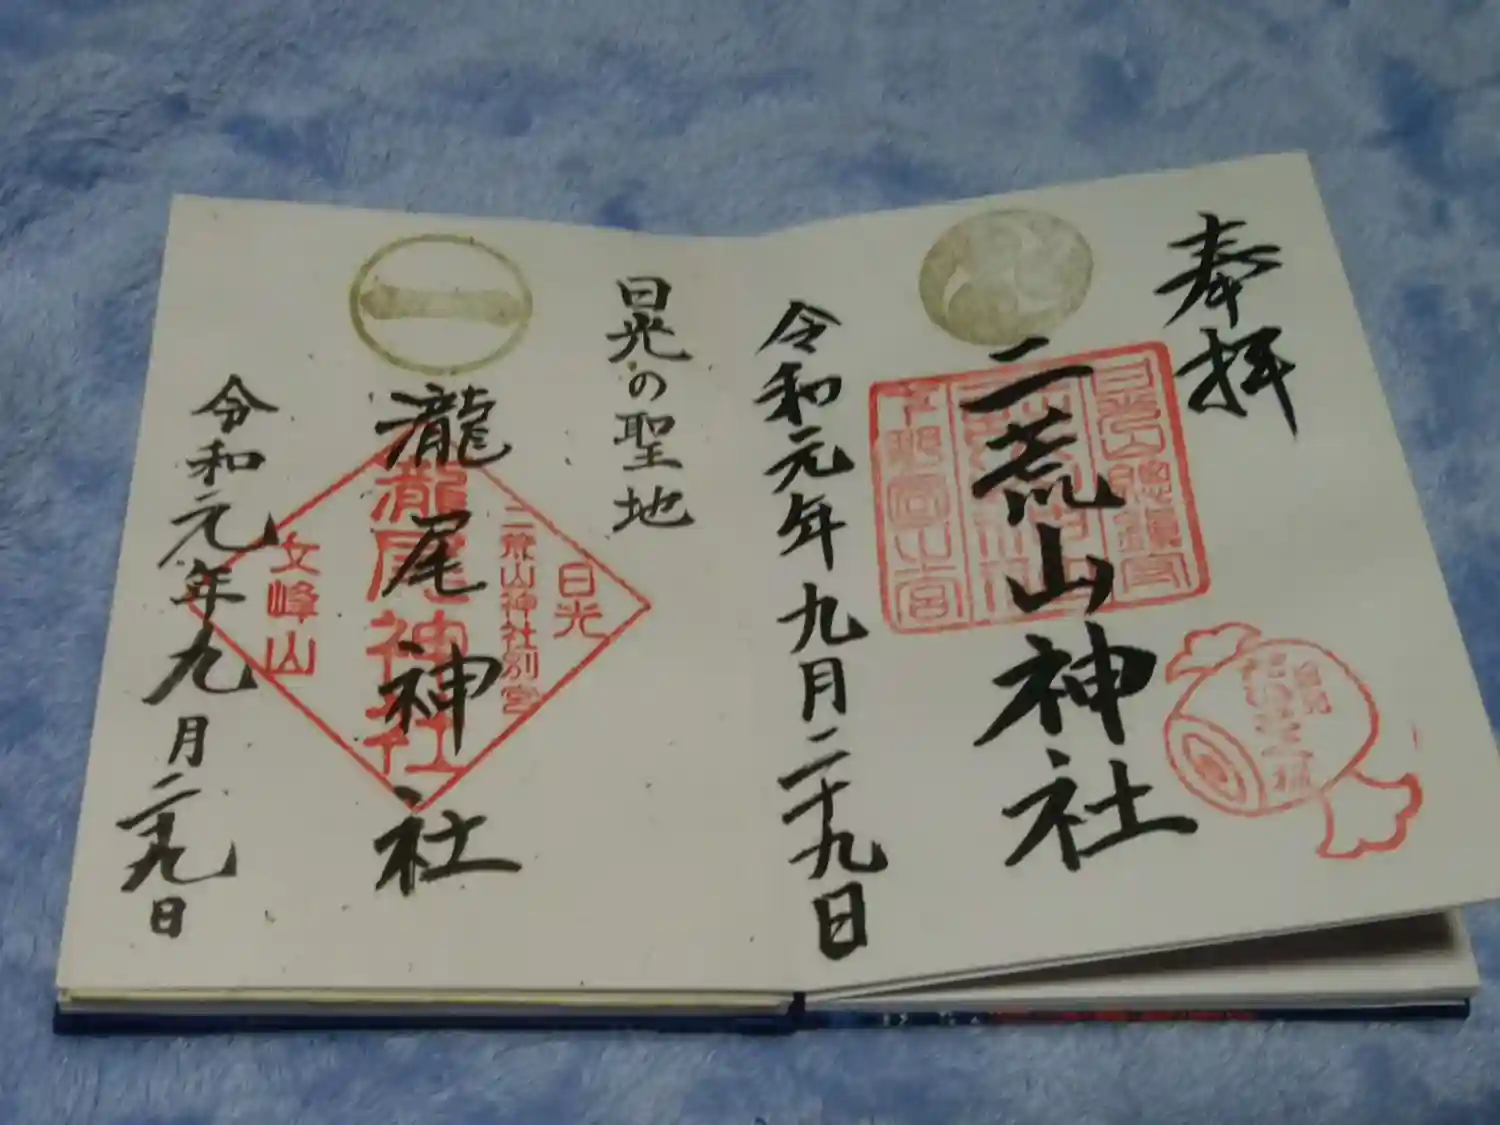 奉拝
二荒山神社
令和元年九月二十九日
日光の聖地
瀧尾神社
令和元年九月二十九日
日光
二荒山神社別宮
瀧尾神社
女峰山